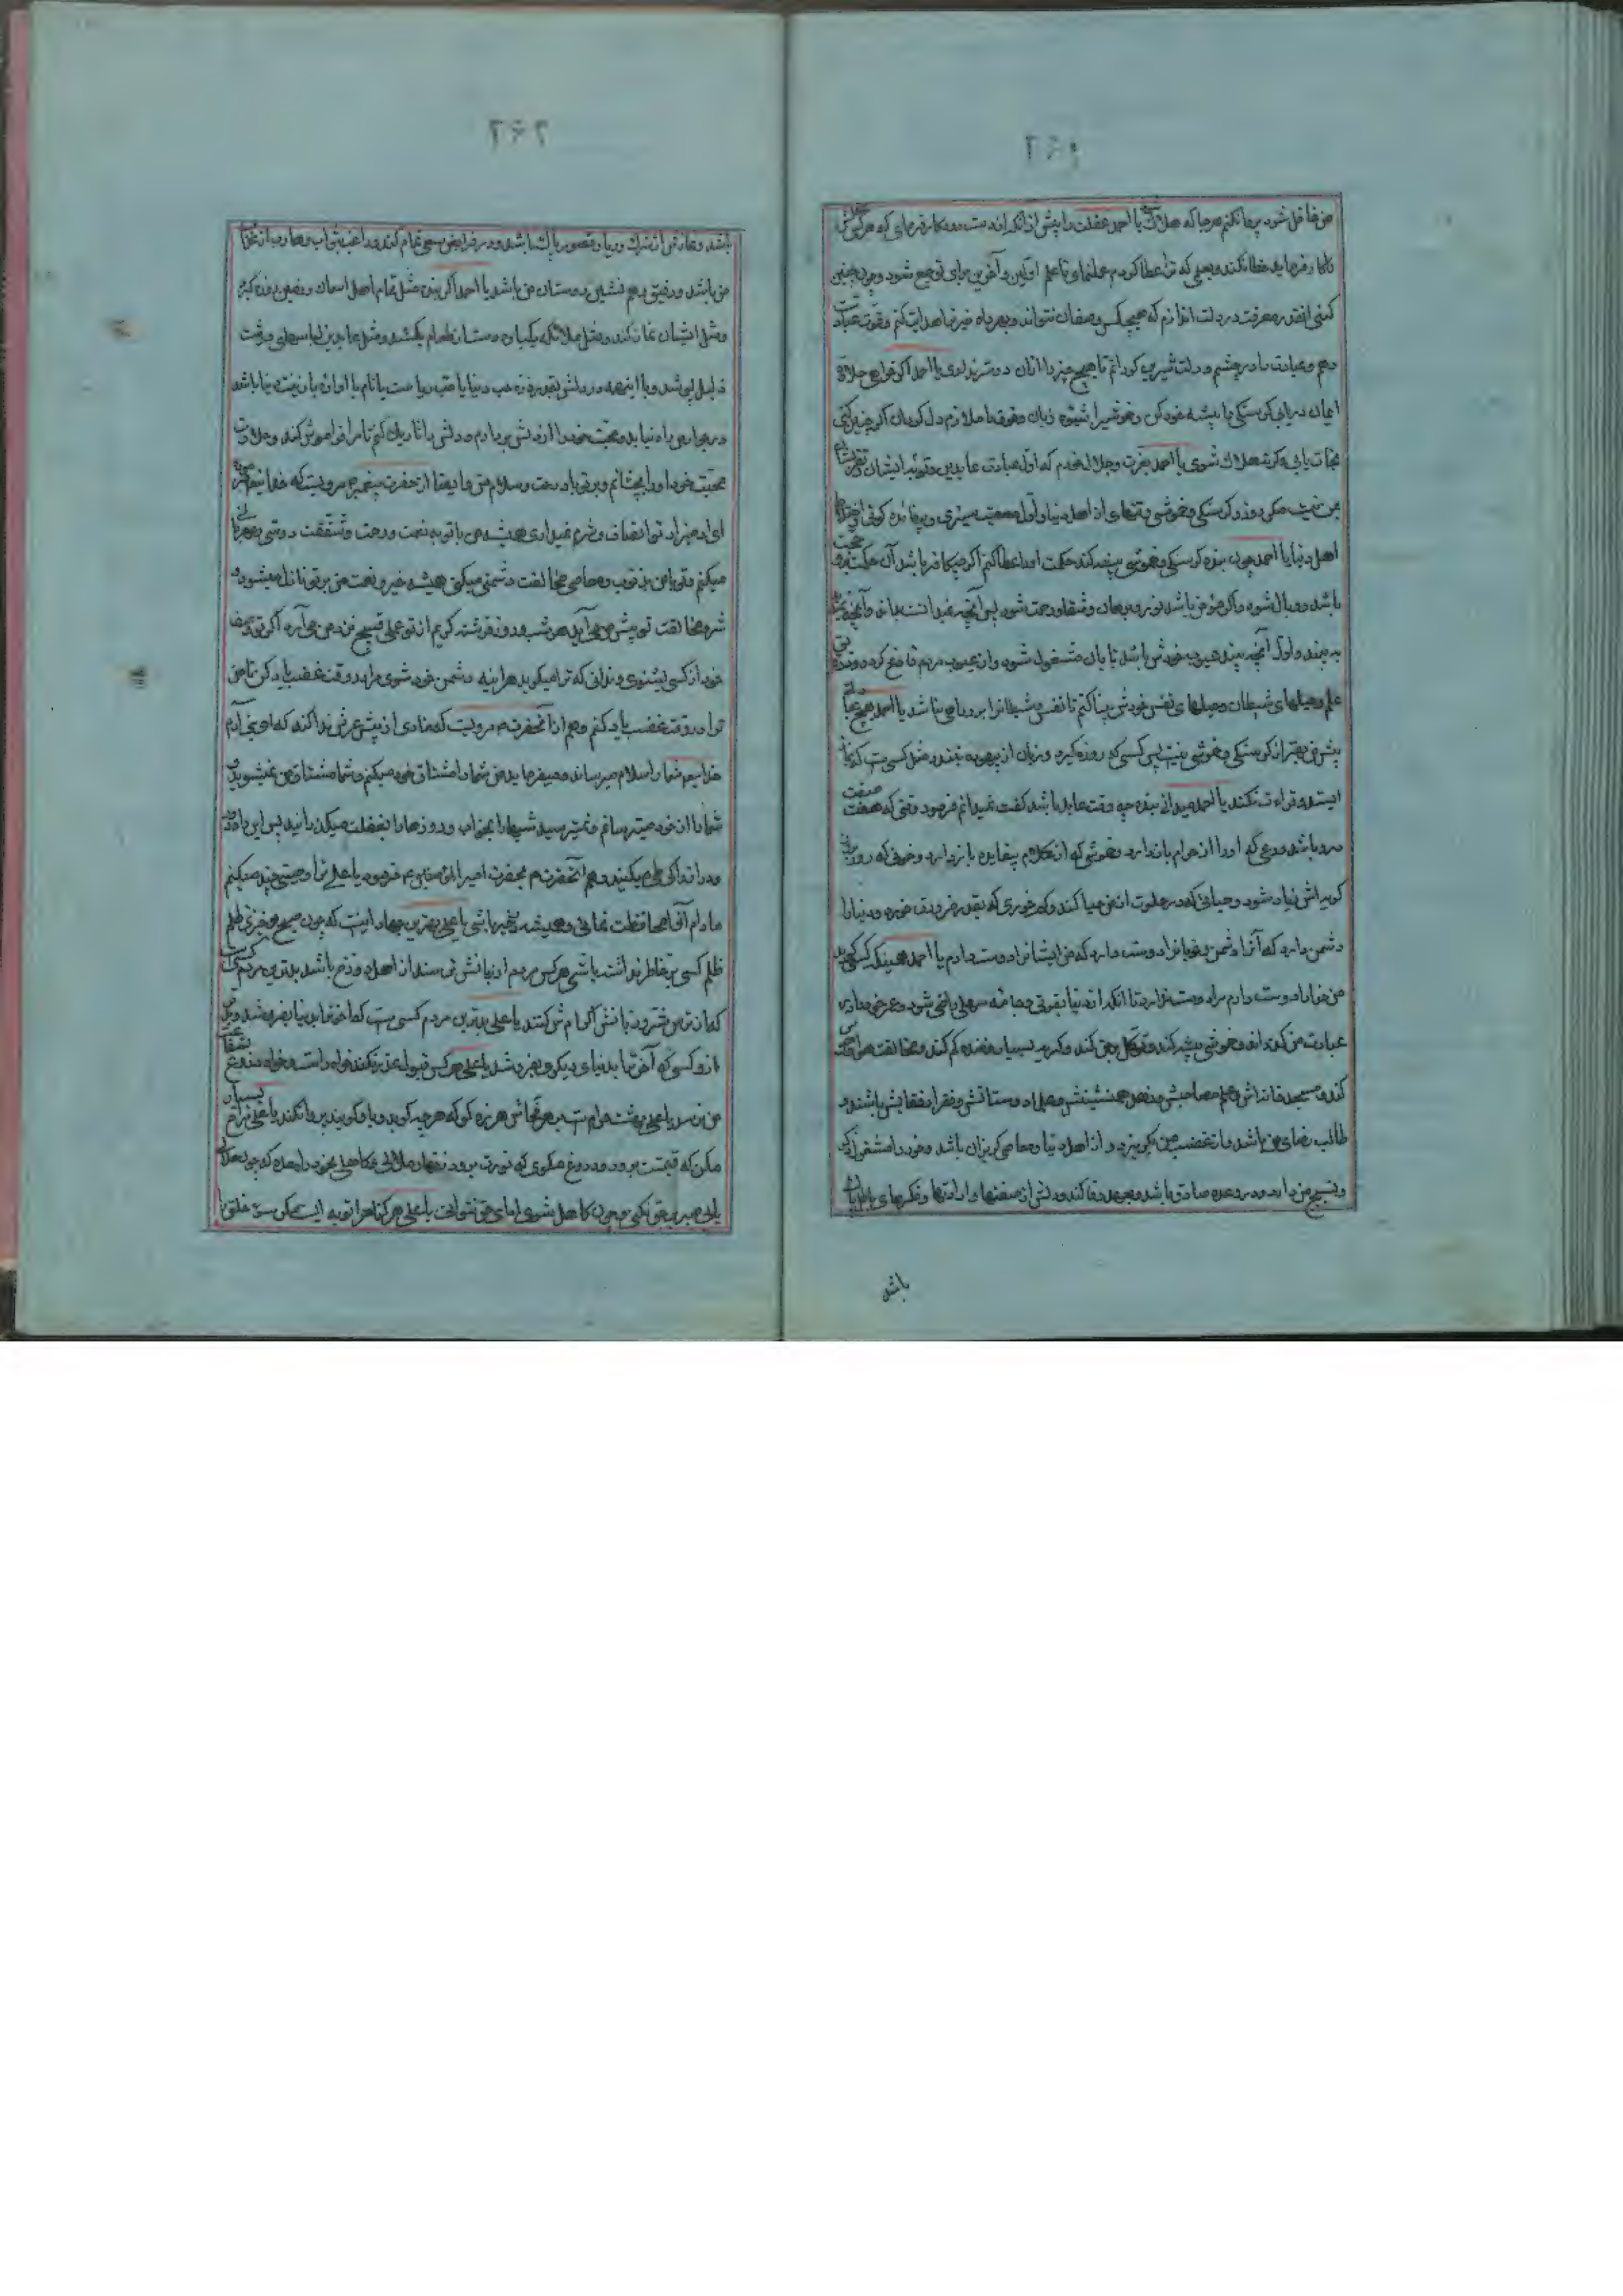 ۲۶۱
من غافل شود پروا نکنم هرجا که هلاک شود یا احمد عقلت را پیش از آنکه از دست رود کار فرمای که هر کس عقل
را کار فرماید خطا نکند و بعلمی که ترا عطا کردم عمل نمای تا علم اولین و آخرین برای تو جمع شود و چون چنین
کنی انقدر معرفت در دلت اندازم که هیچکس وصف آن نتواند و بهر راه خیر ترا هدایت کنم و قوت عبادت
دهم و عبادت را در چشم و دلت شیرین گردانم تا هیچ چیز را از آن دوستر نداری یا احمد اگر خواهی حلاوت
ایمان دریابی گرسنگی را پیشه خود کن و خموشی را شیوه زبان و خوف را ملازم دل گردان اگر چنین کنی
نجات یابی و گرنه هلاک شوی یا احمد بعزت و جلال خودم که اول عبادت عابدین و توبه ایشان و تقرب ایشان
بمن نیست مگر روزه و گرسنگی و خموشی و تنهای از اهل دنیا و اول معصیت سیری و بیفائده گوئی و اختلاط
اهل دنیا یا احمد چون بنده گرسنگی و خموشی پیشه کند حکمت او را عطا کنم اگرچه کافر باشد آن حکمت برو حجت
باشد و وبال شود و اگر مؤمن باشد نور و برهان و شفا و رحمت شود پس آنچه نمیدانست بداند و آنچه نمیدید
به بیند و اول آنچه بیند عیوب خودش باشد تا بآن مشغول شود و از عیوب مردم فارغ گردد و
علم و حیلهای شیطان و حیلهای نفس خودش بینا کنم تا نفس و شیطانرا برو راهی نباشد یا احمد هیچ عبادت
پیش من بهتر از گرسنگی و خموشی نیست پس کسی که روزه گیرد و زبان از بیهوده نبندد مثل کسی است که بنماز
ایستد و قراءت نکند یا احمد میدانی بنده چه وقت عابد باشد گفت نمیدانم فرمود وقتی که هفت صفت
درو باشد ورعی که او را از حرام باز دارد و خموشی که از کلام بیفایده باز دارد و خوفی که روز بروز
گریه اش زیاد شود و حیائی که در خلوت از من حیا کند و کم خوری که بقدر ضرورت خورد و دنیا را
دشمن دارد که آنرا دشمن و خوبانرا دوست دارد که من ایشانرا دوست دارم یا احمد همینکه کسی گوید
من خدا را دوست دارم مرا دوست ندارد تا انکه از دنیا بقوتی و جامه سهلی راضی شود و عمر خود را در
عبادت من گذراند و خموشی پیشه کند و توکل بر من کند و گریه بسیار و خنده کم کند و مخالفت هوا و هوس
کند و مسجد خانه اش و علم مصاحبش و زهد همنشینش و علما دوستانش و فقرا رفقایش باشند و
طالب رضای من باشد و از غضب من بگریزد و از اهل دنیا و معاصی گریزان باشد و خود را مشغول ذکر
و تسبیح من دارد و در وعده صادق باشد و بعهد وفا کند و دلش از صفتها و ارادتها و فکرهای باطل پاک
باشد
۲۶۲
باشد و نمازش از شرک و ریا و قصور پاک باشد و در فرایض سعی تمام کند و راغب ثواب و هارب از عذاب
من باشد و رفیق و هم نشین دوستان من باشد یا احمد اگر بنده مثل تمام اهل آسمان و زمین روزه گیرد
و مثل ایشان نماز کند و مثل ملائکه یکباره دست از طعام بکشد و مثل عابدین لباسهای درشت
ذلیل پوشد و با اینهمه در دلش بقدر ذره حب دنیا یا حب ریاست یا نام یا آوازه یا زینت دنیا باشد
در جوار من راه نیابد و محبت خود را از دلش بردارم و دلش را تاریک کنم تا مرا فراموش کند و حلاوت
محبت خود او را نچشانم و بر تو باد رحمت و سلام من و ایضا از حضرت پیغمبر مرویست که خدا میفرماید
ای آدمیزاد تو انصاف و شرم نمیداری همیشه من با تو به نعمت و رحمت و شفقت دوستی و مهربانی
میکنم و تو با من بذنوب و معاصی و مخالفت دشمنی میکنی همیشه خیر و نعمت من بر تو نازل میشود و
شر و مخالفت تو پیش من می آید هر شب و روز فرشته کریم از تو عمل قبیح نزد من می آرد اگر تو وصف
خود از کسی بشنوی و ندانی که ترا میگوید هر آینه دشمن خود شوی مرا در وقت غضب یاد کن تا من
ترا در وقت غضب یاد کنم و هم از آنحضرت مرویست که منادی از پیش عرش ندا کند که ای بنی آدم
خدا شما را سلام میرساند و میفرماید من شما را مشتاق خود میکنم و شما مشتاق من نمیشوید و
شما را از خود میترسانم و نمیترسید شبها را بخواب و روزها را بغفلت میگذرانید پس این راه دور
و دراز را کی طی میکنید و هم آنحضرت بحضرت امیر المؤمنین فرمود یا علی ترا وصیتی چند میکنم
مادام آنها را محافظت نمائی همیشه بخیر باشی یا علی بهترین جهاد اینست که چون صبح برخیزی ظلم
ظلم کسی بر خاطر نداشته باشی هر کس مردم از زبانش ترسند از اهل دوزخ باشد بدترین مردم کسی است
که از ترس شر زبانش اکرامش کنند یا علی بدترین مردم کسی است که آخرتها بدنیا بفروشد و بدتر
ازو کسی که آخرتها بدنیای دیگری بفروشد یا علی هر کس قبول عذر نکند خواه راست و خواه دروغ شفاعت
من نرسد یا علی بهشت حرام است بر هر فحاش هرزه گو که هرچه گوید و با او گویند پروا نکند یا علی مزاح بسیار
مکن که قیمتت برود و دروغ مگوی که نورت برود زنهار ملالی و کاهلی بخود راه مده که چون ملال
یابی صبر بر حق نکنی و چون کاهل شوی ادای حق نتوانی یا علی هر گناهرا توبه ایست مگر سوء خلق را